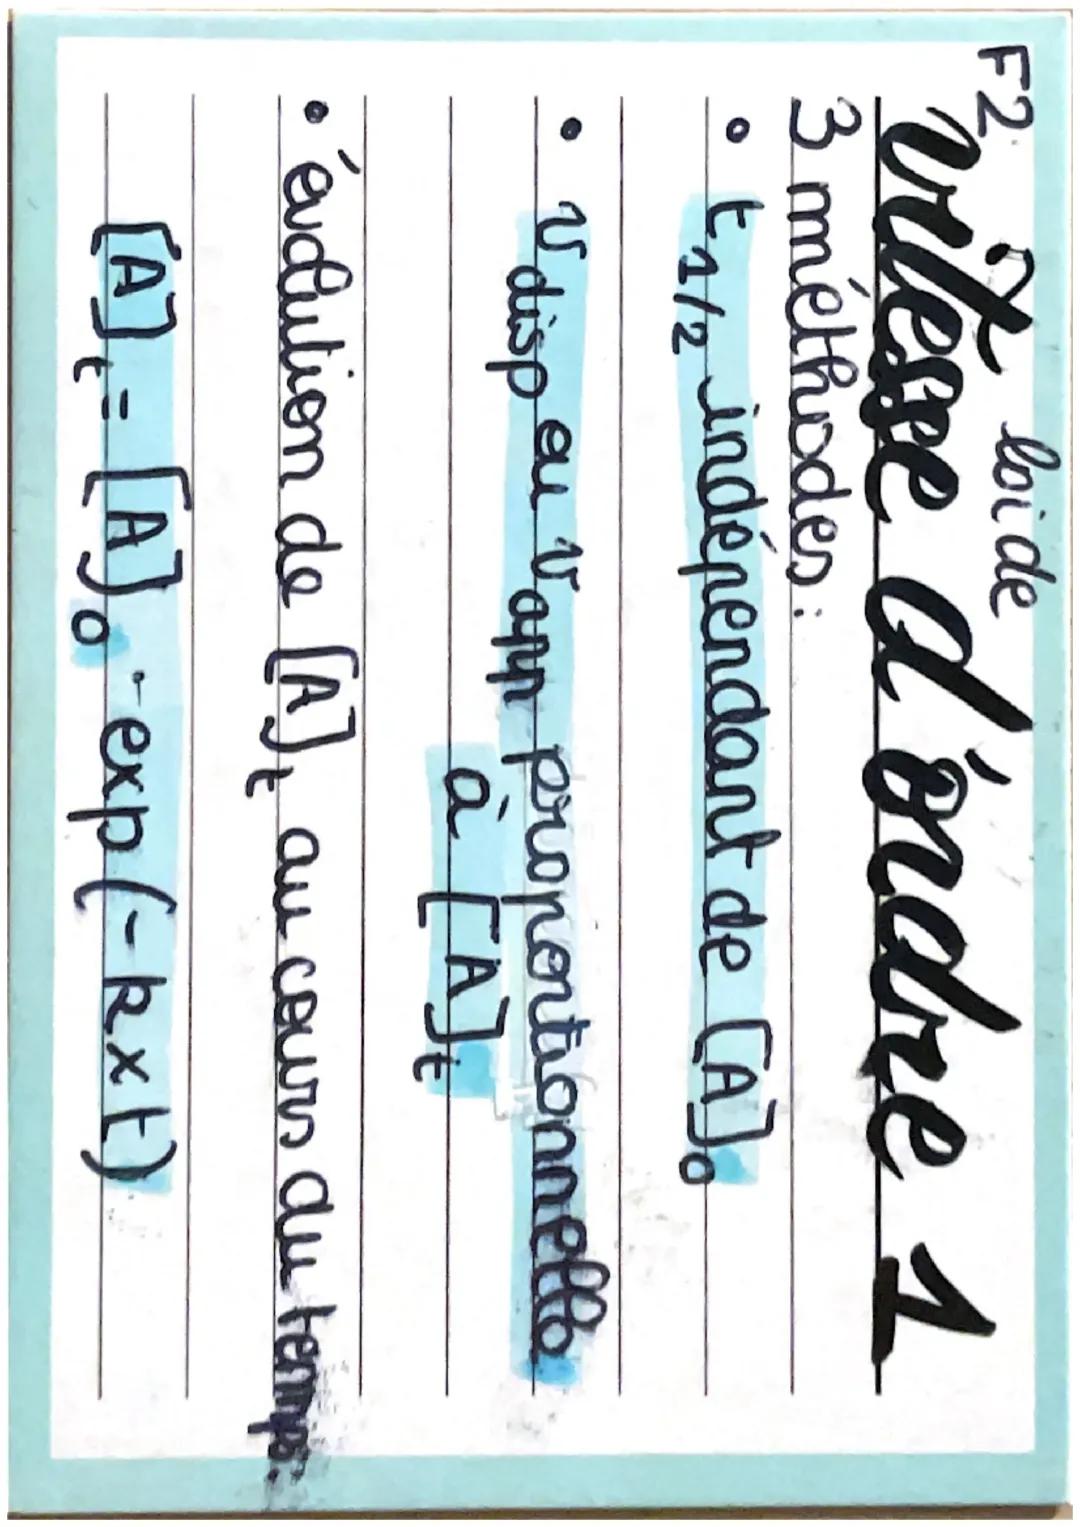 F2.
loi de
vitesse d'ordre 1
3 méthodes:
• t1/2 indépendant de [A]0
• v disp ou v app proportionnelle
à [A]t
• évolution de [A]t au cours du temps.
[A]t = [A]0 · exp(-kxt)